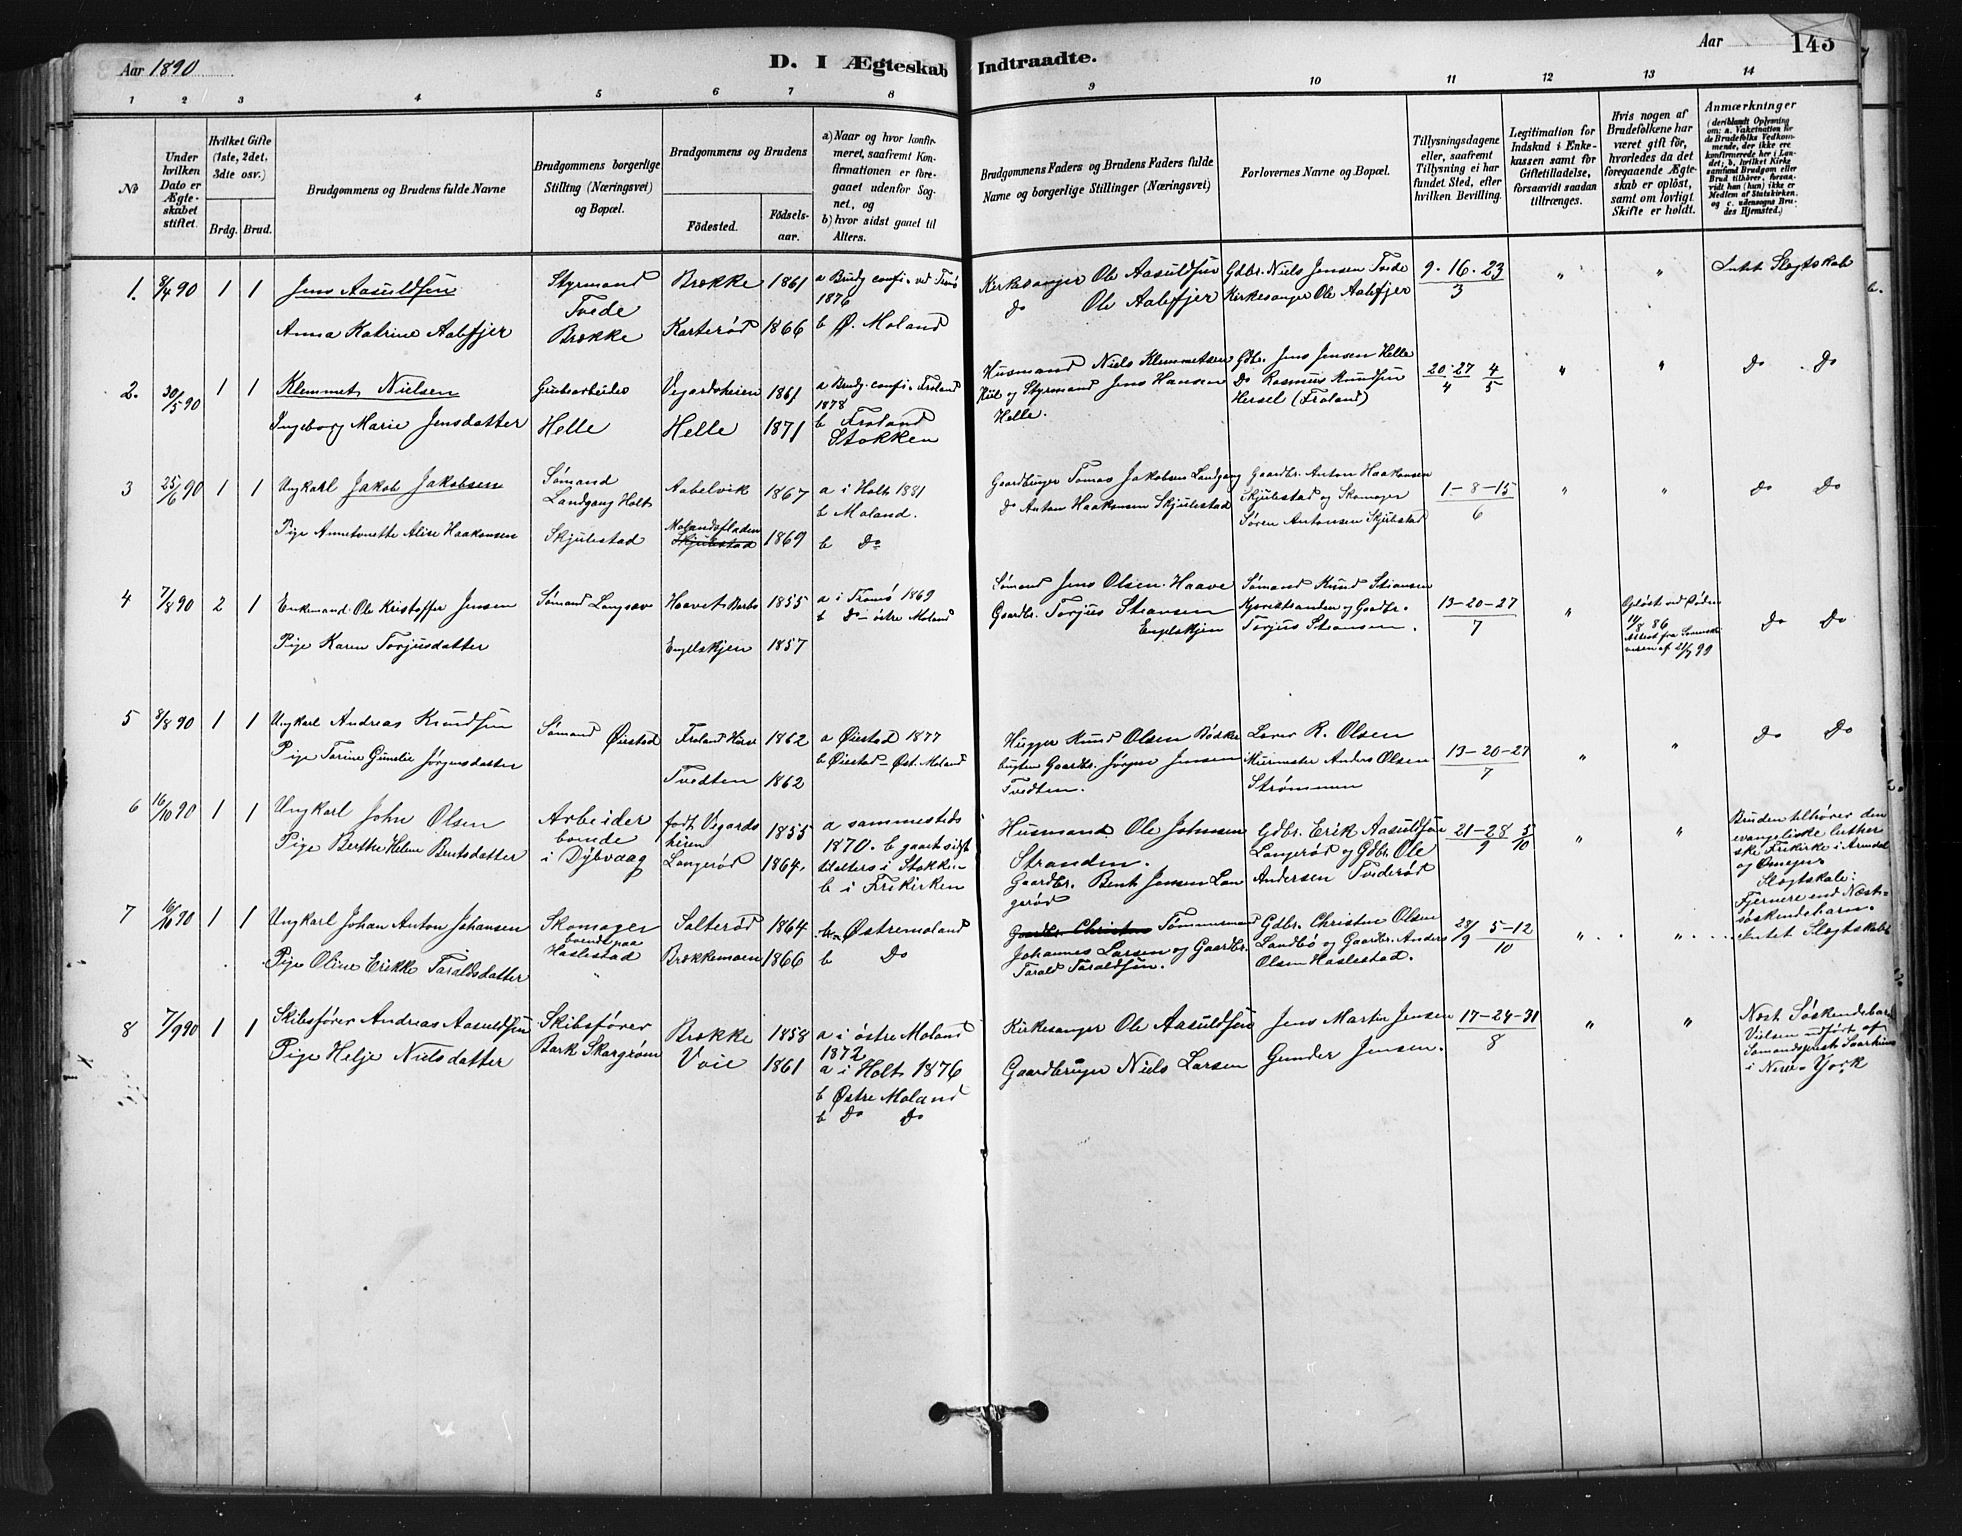 Aar 1890
D. I Ægteskab Indtraadte.
Aar
143
1 2 3 4 5 6 7 8 9 10 11 12 13 14
No
Under hvilken Dato er Ægteskabet stiftet.
Hvilket Gifte (1ste, 2det, 3die osv.)
Brdg. Brud.
Brudgommens og Brudens fulde Navne
Brudgommens borgerlige Stilling (Næringsvei) og Bopæl.
Brudgommens og Brudens
Födested. Födselsaar.
a) Naar og hvor konfirmeret, saafremt Konfirmationen er foregaaet udenfor Sognet, og
b) hvor sidst gaaet til Alters.
Brudgommens Faders og Brudens Faders fulde Navne og borgerlige Stillinger (Næringsvei)
Forlovernes Navne og Bopæl.
Tillysningsdagene eller, saafremt Tillysning ei har fundet Sted, efter hvilken Bevilling.
Legitimation for Indskud i Enkekassen samt for Giftetilladelse, forsaavidt saadan tiltrænges.
Hvis nogen af Brudefolkene har været gift för, hvorledes da det foregaaende Ægteskab er oplöst, samt om lovligt Skifte er holdt.
Anmærkninger
(deriblandt Oplysning om: a. Vakcination for de Brudefolks Vedkommende, der ikke ere konfirmerede her i Landet; b. hvilket Kirkesamfund Brudgom eller Brud tilhörer, forsaavidt han (hun) ikke er Medlem af Statskirken, og c. udensogns Brudes Hjemsted.)
1. 8/4 90 1 1 Jens Aasuldsen Styrmand Tvede Brække 1861 a Brudg. conf. ved Tromø 1876
Kirkesanger Ole Aasuldsen Gdbr. Niels Jensen Tvede 9. 16. 23 / 3 " " Intet Slegtskab
Anna Katrine Aalefjer Brække Karterød 1866 b Ø. Moland
Do Ole Aalefjer Kirkesanger Ole Aalefjer
2. 30/5 90 1 1 Klemmet Nielsen Grubearbeider Vegardsheien 1861 a Brudg. conf. Froland 1878
Husmand Niels Klemmetsen Gdbr. Jens Jensen Helle 20. 27 / 4 4 / 5 " " Do Do
Ingeborg Marie Jensdatter Helle Helle 1871 b Froland Stokken
og Styrmand Jens Hansen Helle. Do Rasmus Knudsen Hersel (Froland)
3 25/6 90 1 1 Ungkarl Jakob Jakobsen Sømand Landgang Holt Aabelvik 1867 a i Holt 1881 b Moland.
Gaardbruger Tomas Jakobsen Landgang Gaardbr. Anton Haakonsen 1-8-15 / 6 " " Do Do
Pige Annetonette Alise Haakonsen Skjulestad Molandsfladen Skjulestad 1869 b Do
Do Anton Haakonsen Skjulestad Skjulestad og Skomager Søren Antonsen Skjulestad
4 7/8 90 2 1 Enkemand Ole Kristoffer Jensen Sømand Langsæv Haavet Barbo 1855 a i Tromø 1869 b Do - østre Moland
Sømand Jens Olsen Haave Sømand Knud Stiansen 13-20-27 / 7 " Opløst ved Døden 11/8 86 Attest fra af 21/7 90 Do Do
Pige Karen Torjusdatter Engelskjen 1857
Gaardbr. Torjus Stiansen Engelskjen og Gaardbr. Torjus Stiansen.
5 8/8 90 1 1 Ungkarl Andreas Knudsen Sømand Øiestad Froland 1862 a Øiestad 1877 b Øiestad - Øst. Moland
Hugger Knud Olsen Lærer R. Olsen 13-20-27 / 7 " " Do Do
Pige Torine Gunelie Jørgensdatter Tvedten 1862
Gaardbr. Jørgen Jensen Tvedten. Murmester Anders Olsen Strømmen
6 16/10 90 1 1 Ungkarl John Olsen Arbeider boende i Dybvaag født Vegardsheien 1855 a sammesteds 1870. b gaaet sidst til alters i Stokken
Husmand Ole Johnsen Stranden. Gdbr. Erik Aasuldsen Langerød og Gdbr. Ole Andersen Tviderød 21-28 / 9 5 / 10 " "
Pige Berthe Helene Bentsdatter Langerød 1864. b i Frikirken
Gaardbr. Bent Jensen Langerød
Bruden tilhører den evangeliske lutherske Frikirke i Arendal og Omegn.
Slegtskab: Fjernere end Næstsøskendebarn.
7 16/10 90 1 1 Ungkarl Johan Anton Johansen Skomager boende paa Haslestad Salterød 1864 b. Østremoland
Gaardbr. Christen Tømmermand Johannes Larsen og Gaardbr. Tarald Taraldsen. Gdbr. Christen Olsen Landbø og Gaardbr. Anders Olsen Haslestad. 28/9 5-12 / 10 " " Intet Slegtskab
Pige Oline Erikke Taraldsdatter Brækkemoen 1866 b Do
8 7/9 90 1 1 Skibsfører Andreas Aasuldsen Skibsfører Brække 1858 a i østre Moland 1872
Kirkesanger Ole Aasuldsen Jens Martin Jensen 17-24-31 / 8 " " Næst Søskendebarn
Pige Helje Nielsdatter Bark Skargrøm Voie 1861 a i Holt 1876 b Østre Moland b Do Do
Gaardbruger Niels Larsen Gunder Jensen.
Vielsen udført af Sømandsprest i New-York